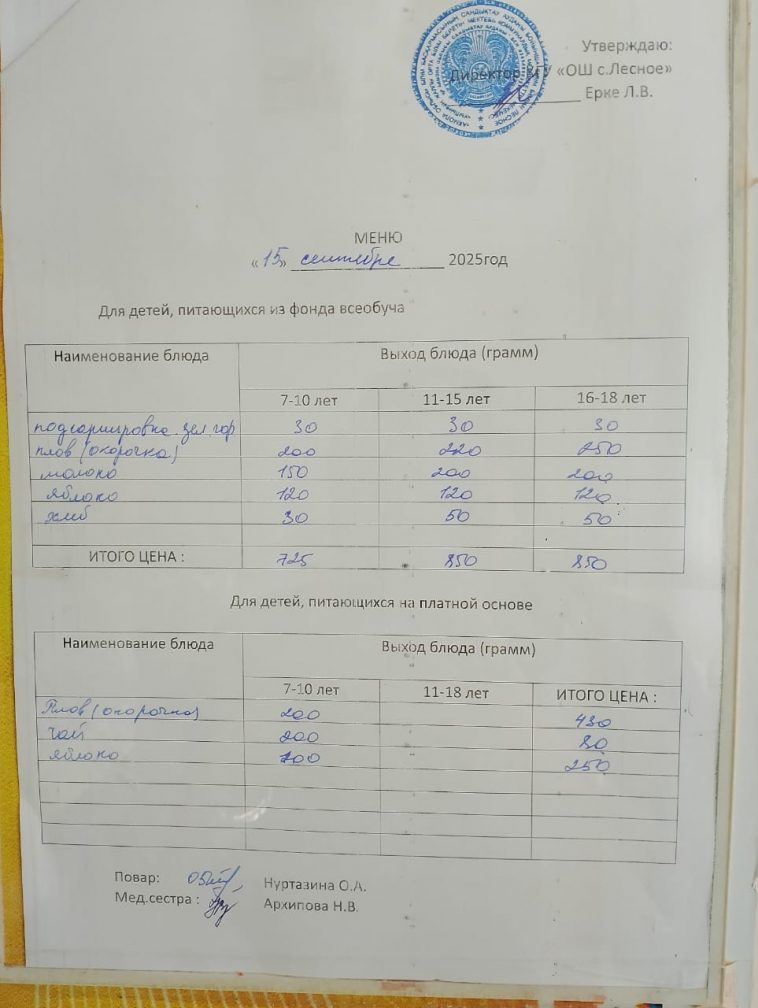 Утверждаю:
Директор КГУ «ОШ с.Лесное»
Ерке Л.В.
МЕНЮ
«15» сентября 2025год
Для детей, питающихся из фонда всеобуча
Наименование блюда Выход блюда (грамм)
7-10 лет 11-15 лет 16-18 лет
подгарнировка зел гор 30 30 30
плов (окорочка) 200 220 250
молоко 150 200 200
яблоко 120 120 120
хлеб 30 50 50
ИТОГО ЦЕНА : 725 850 850
Для детей, питающихся на платной основе
Наименование блюда Выход блюда (грамм)
7-10 лет 11-18 лет ИТОГО ЦЕНА :
Плов (окорочка) 200 430
чай 200 80
яблоко 100 250
Повар: Нуртазина О.А.
Мед.сестра : Архипова Н.В.